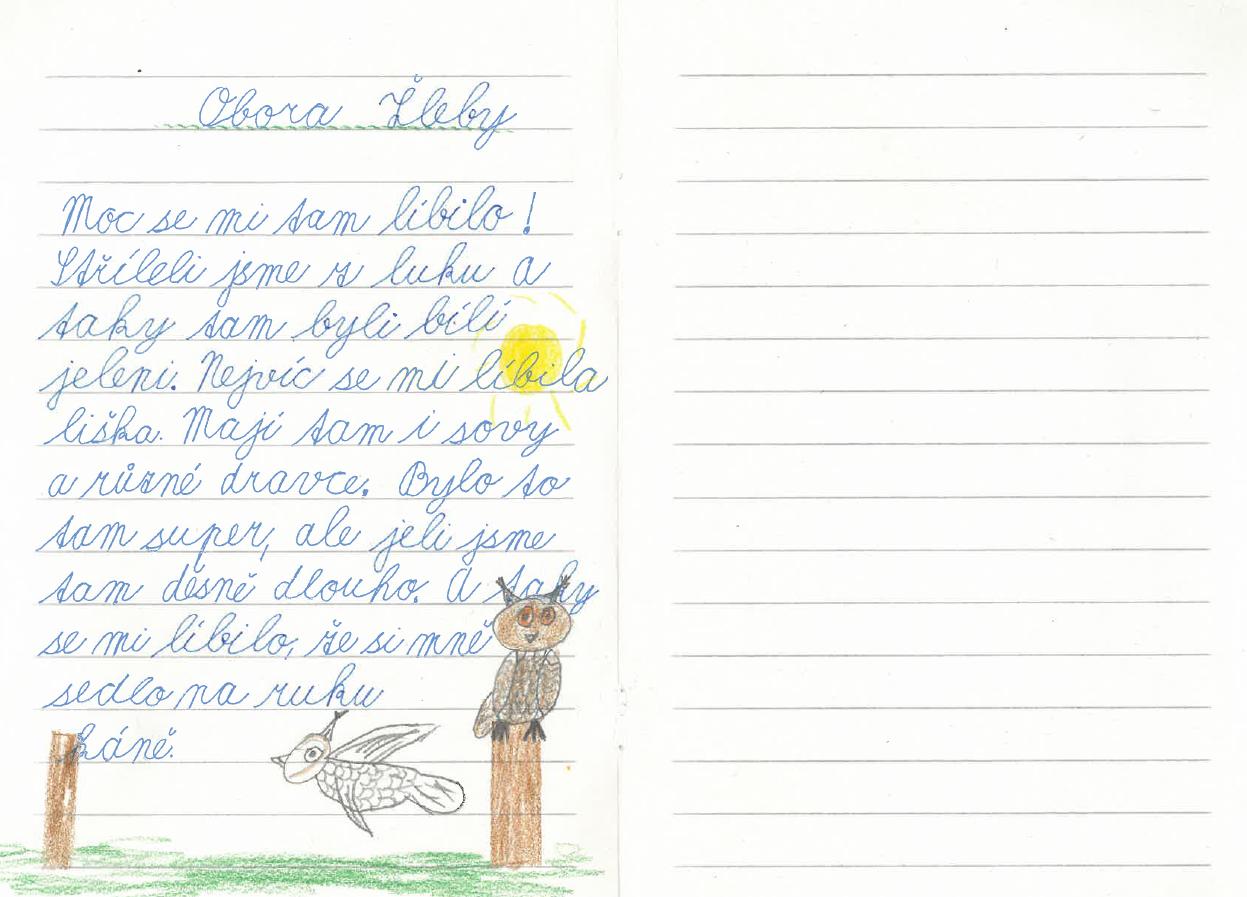 Obora Žleby
Moc se mi tam líbilo!
Stříleli jsme z luku a
taky tam byli bílí
jeleni. Nejvíc se mi líbila
liška. Mají tam i sovy
a různé dravce. Bylo to
tam super, ale jeli jsme
tam děsně dlouho. A taky
se mi líbilo, že si mně
sedlo na ruku
káně.